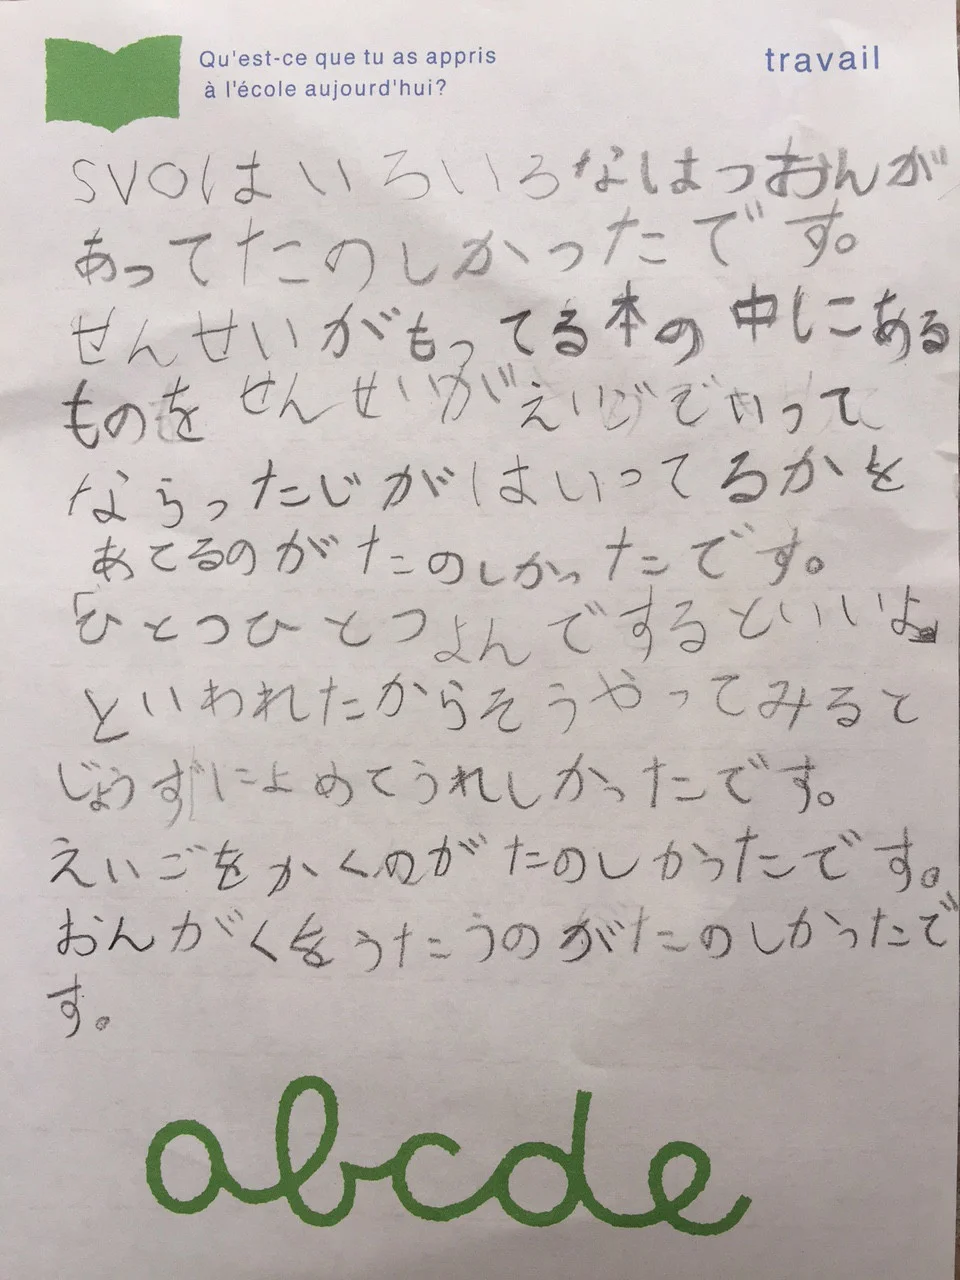 Qu'est-ce que tu as appris
à l'école aujourd'hui?
travail
SVOはいろいろなはつおんが
あってたのしかったです。
せんせいがもってる本の中にある
ものをせんせいがえいごでいって
ならったじがはいってるかを
あてるのがたのしかったです。
「ひとつひとつよんでするといいよ」
といわれたからそうやってみると
じょうずによめてうれしかったです。
えいごをかくのがたのしかったです。
おんがくをうたうのがたのしかったで
す。
abcde